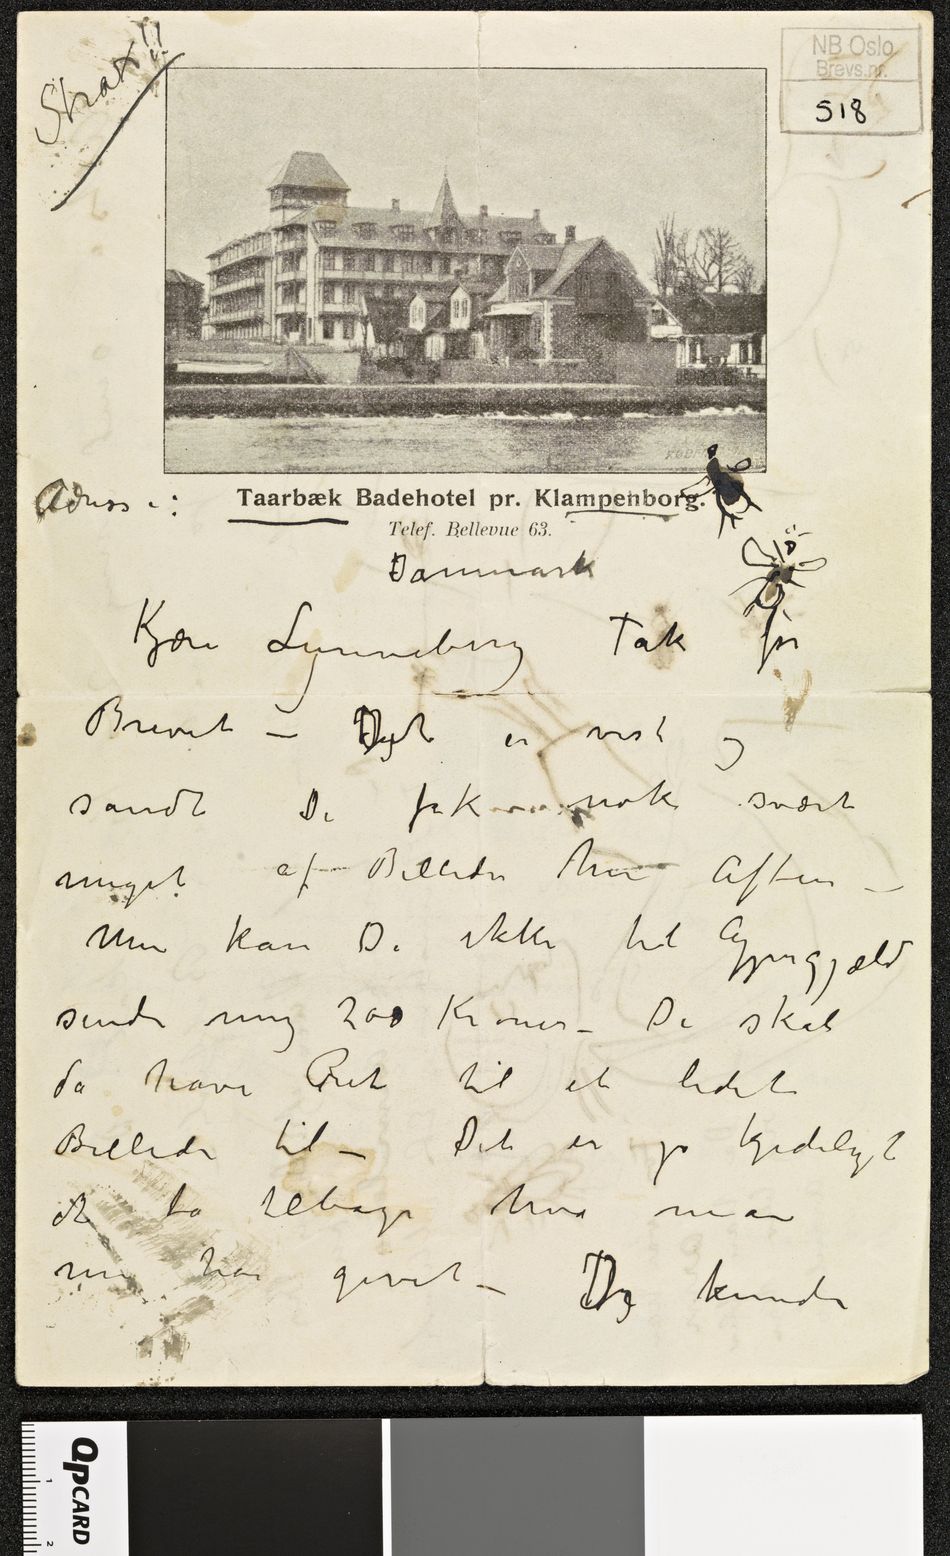 Strax!!
NB Oslo
Brevs.nr.
518
Adress:
Taarbæk Badehotel pr. Klampenborg.
Telef. Bellevue 63.
Danmark
Kjære Lynneberg Tak for
Brevet – Det er vist og
sandt De fik nok svært
meget af Billeder hin Aften –
Men kan De ikke til Gjengjæld
sende mig 200 Kroner – De skal
da have Ret til et lidet
Billede til – Det er jo kjedeligt
at ta tilbage hva man
har givet – Jeg kunde
QPCARD
1
2